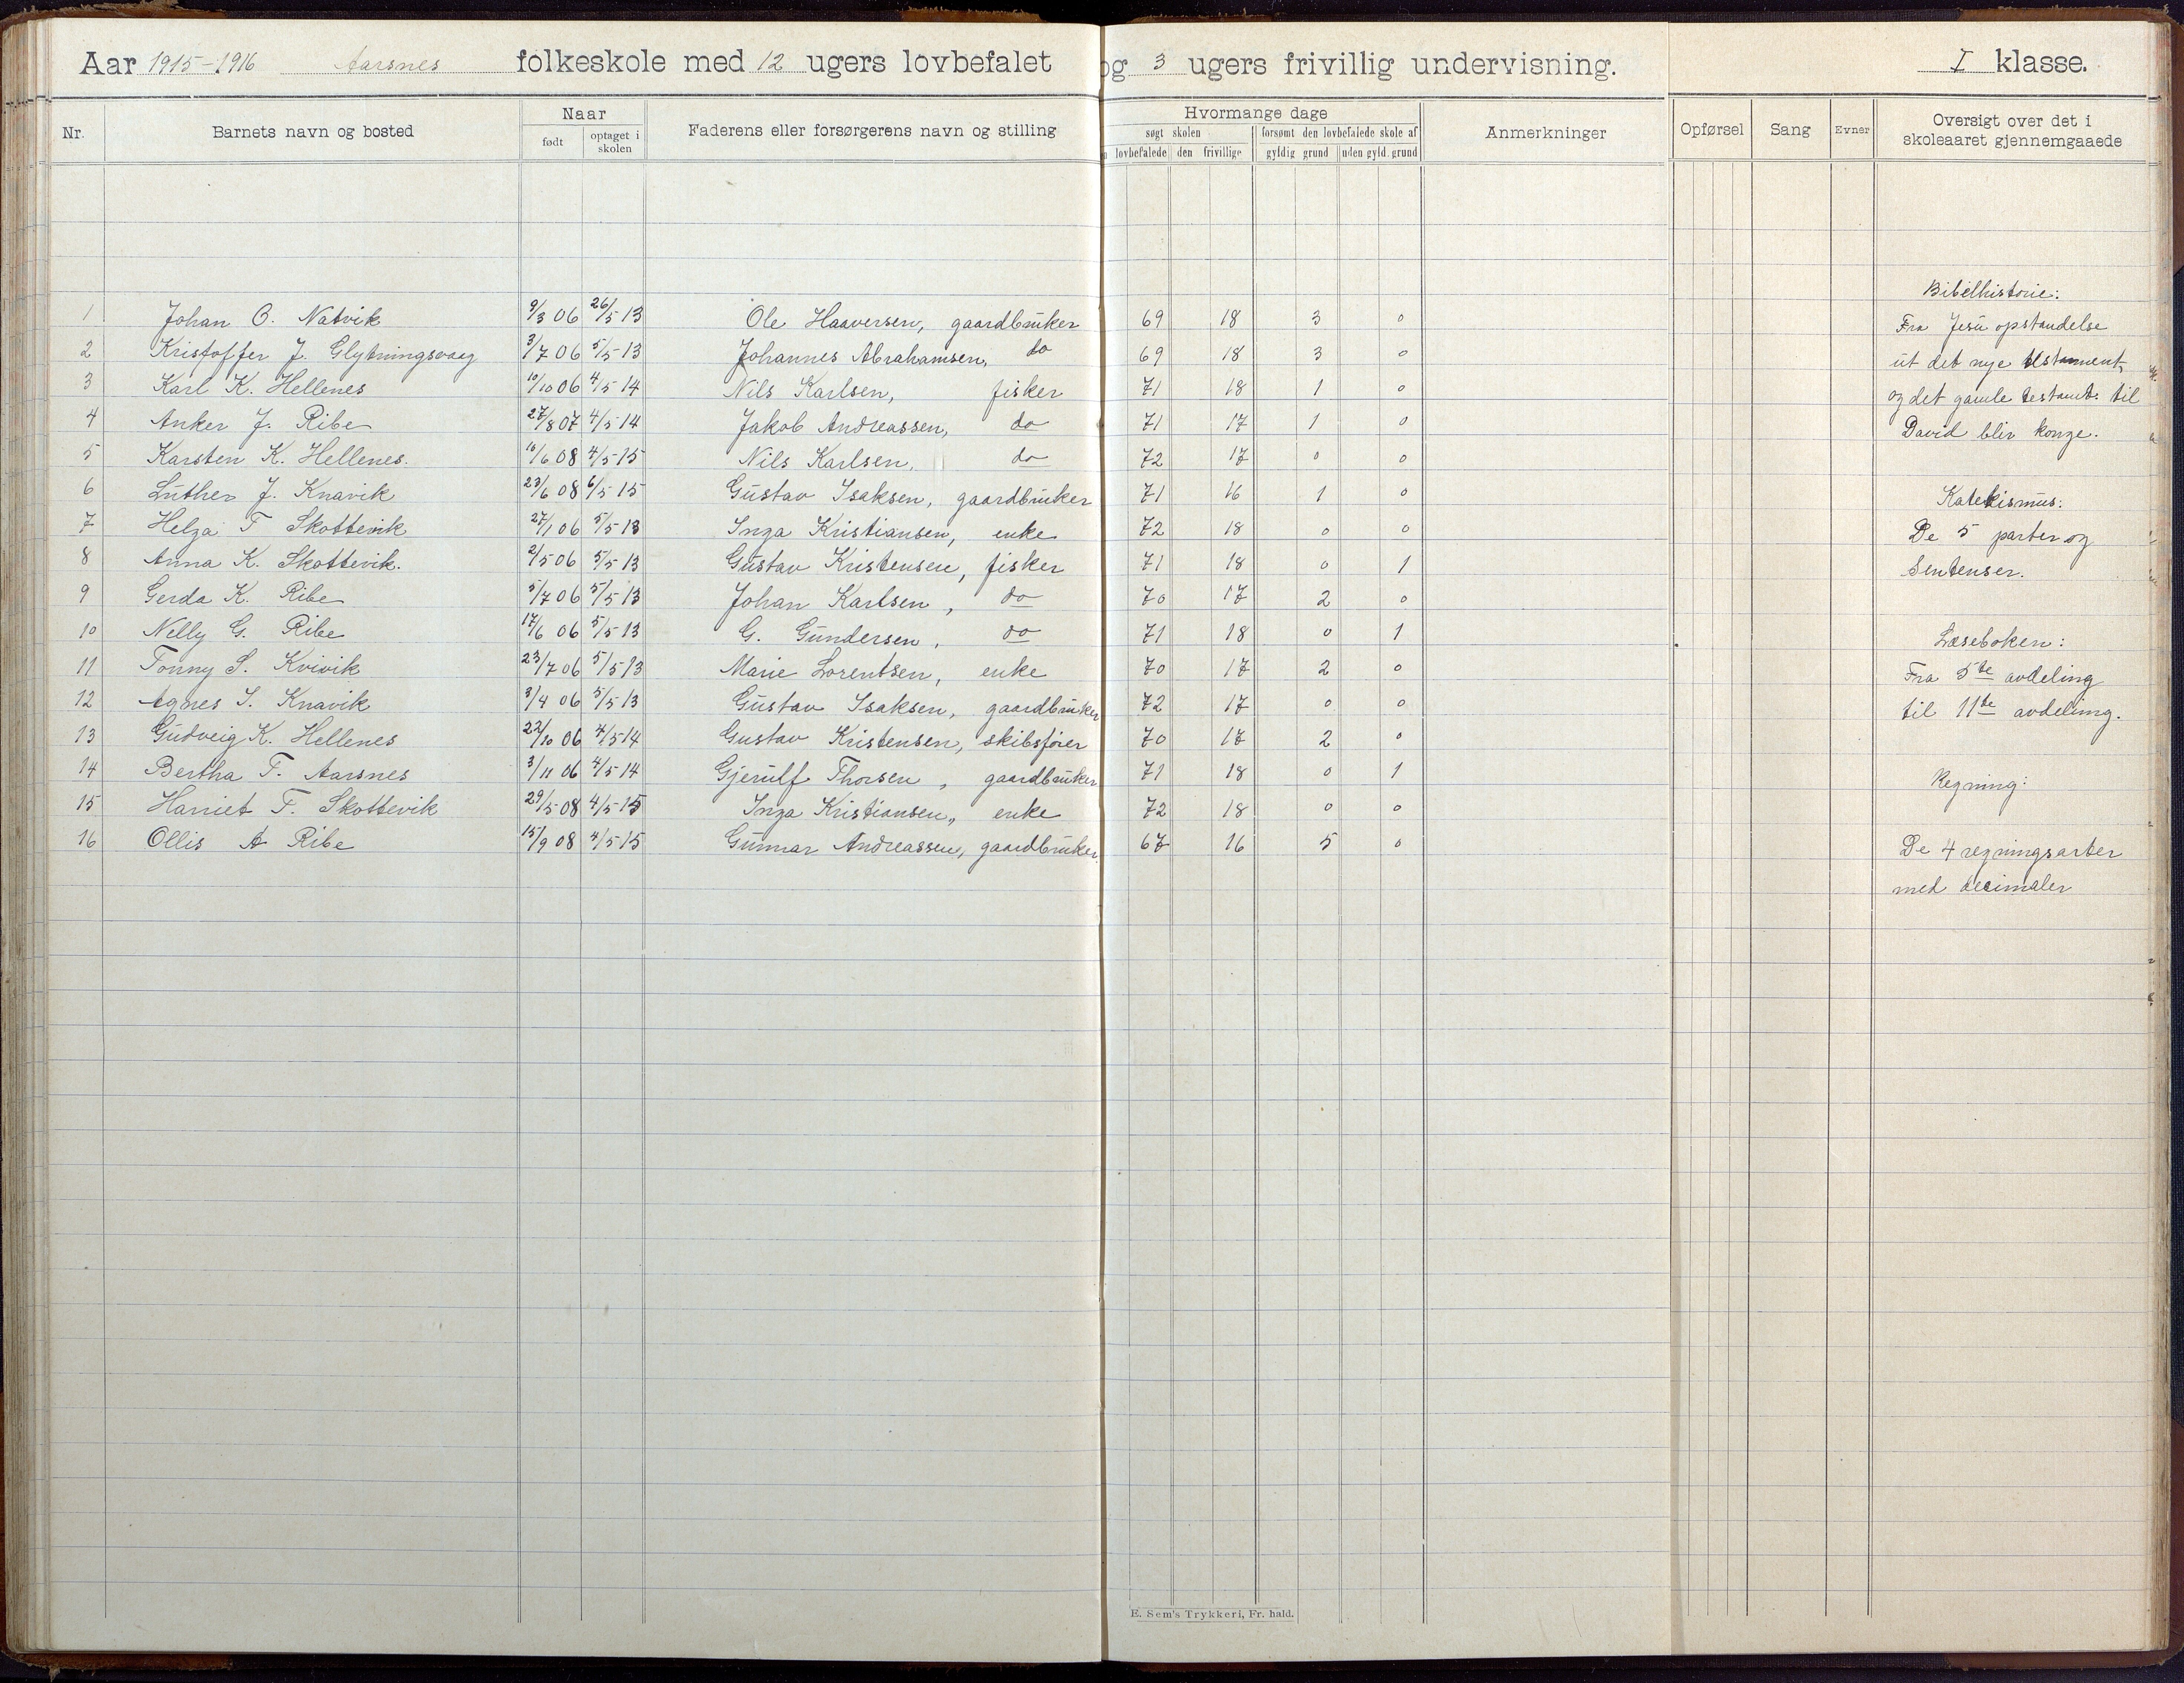 Aar 1915-1916 Aarsnes folkeskole med 12 ugers lovbefalet og 3 ugers frivillig undervisning. I klasse.
Nr. Barnets navn og bosted Naar født optaget i skolen Faderens eller forsørgerens navn og stilling Hvormange dage søgt skolen lovbefalede den frivillige forsømt den lovbefalede skole af gyldig grund uden gyld. grund Anmerkninger Opførsel Sang Evner Oversigt over det i skoleaaret gjennemgaaede
Bibelhistorie:
1 Johan O. Natvik 9/3 06 26/5 13 Ole Haaversen, gaardbruker 69 18 3 0 Fra Jesu opstandelse
2 Kristoffer J. Glybningsvaag 3/7 06 5/5 13 Johannes Abrahamsen, do 69 18 3 0 ut det nye testament
3 Karl K. Hellenes 10/10 06 4/5 14 Nils Karlsen, fisker 71 18 1 0 og det gamle testamt. til
4 Anker J. Ribe 27/8 07 4/5 14 Jakob Andreassen, do 71 17 1 0 David blir konge.
5 Karsten K. Hellenes. 10/6 08 4/5 15 Nils Karlsen, do 72 17 0 0
6 Luther J. Knavik 23/6 08 6/5 15 Gustav Isaksen, gaardbruker 71 16 1 0 Katekismus:
7 Helga T Skottevik 27/1 06 5/5 13 Inga Kristiansen, enke 72 18 0 0 De 5 parter og
8 Anna K. Skottevik. 2/5 06 5/5 13 Gustav Kristensen, fisker 71 18 0 1 Sentenser.
9 Gerda K. Ribe 5/7 06 5/5 13 Johan Karlsen, do 70 17 2 0
10 Nelly G. Ribe 17/6 06 5/5 13 G. Gundersen, do 71 18 0 1 Læseboken:
11 Tonny S. Kvivik 23/7 06 5/5 13 Marie Lorentsen, enke 70 17 2 0 Fra 5te avdeling
12 Agnes I. Knavik 3/4 06 5/5 13 Gustav Isaksen, gaardbruker 72 17 0 0 til 11te avdeling.
13 Gudveig K. Hellenes 22/10 06 4/5 14 Gustav Kristensen, skibsfører 70 17 2 0
14 Bertha T. Aarsnes 3/11 06 4/5 14 Gjerulf Thorsen, gaardbruker 71 18 0 1 Regning:
15 Harriet T. Skottevik 29/5 08 4/5 15 Inga Kristiansen, enke 72 18 0 0
16 Ollis A Ribe 15/9 08 4/5 15 Gunnar Andreassen, gaardbruker. 67 16 5 0 De 4 regningsarter
med decimaler
E. Sem's Trykkeri, Fr. hald.